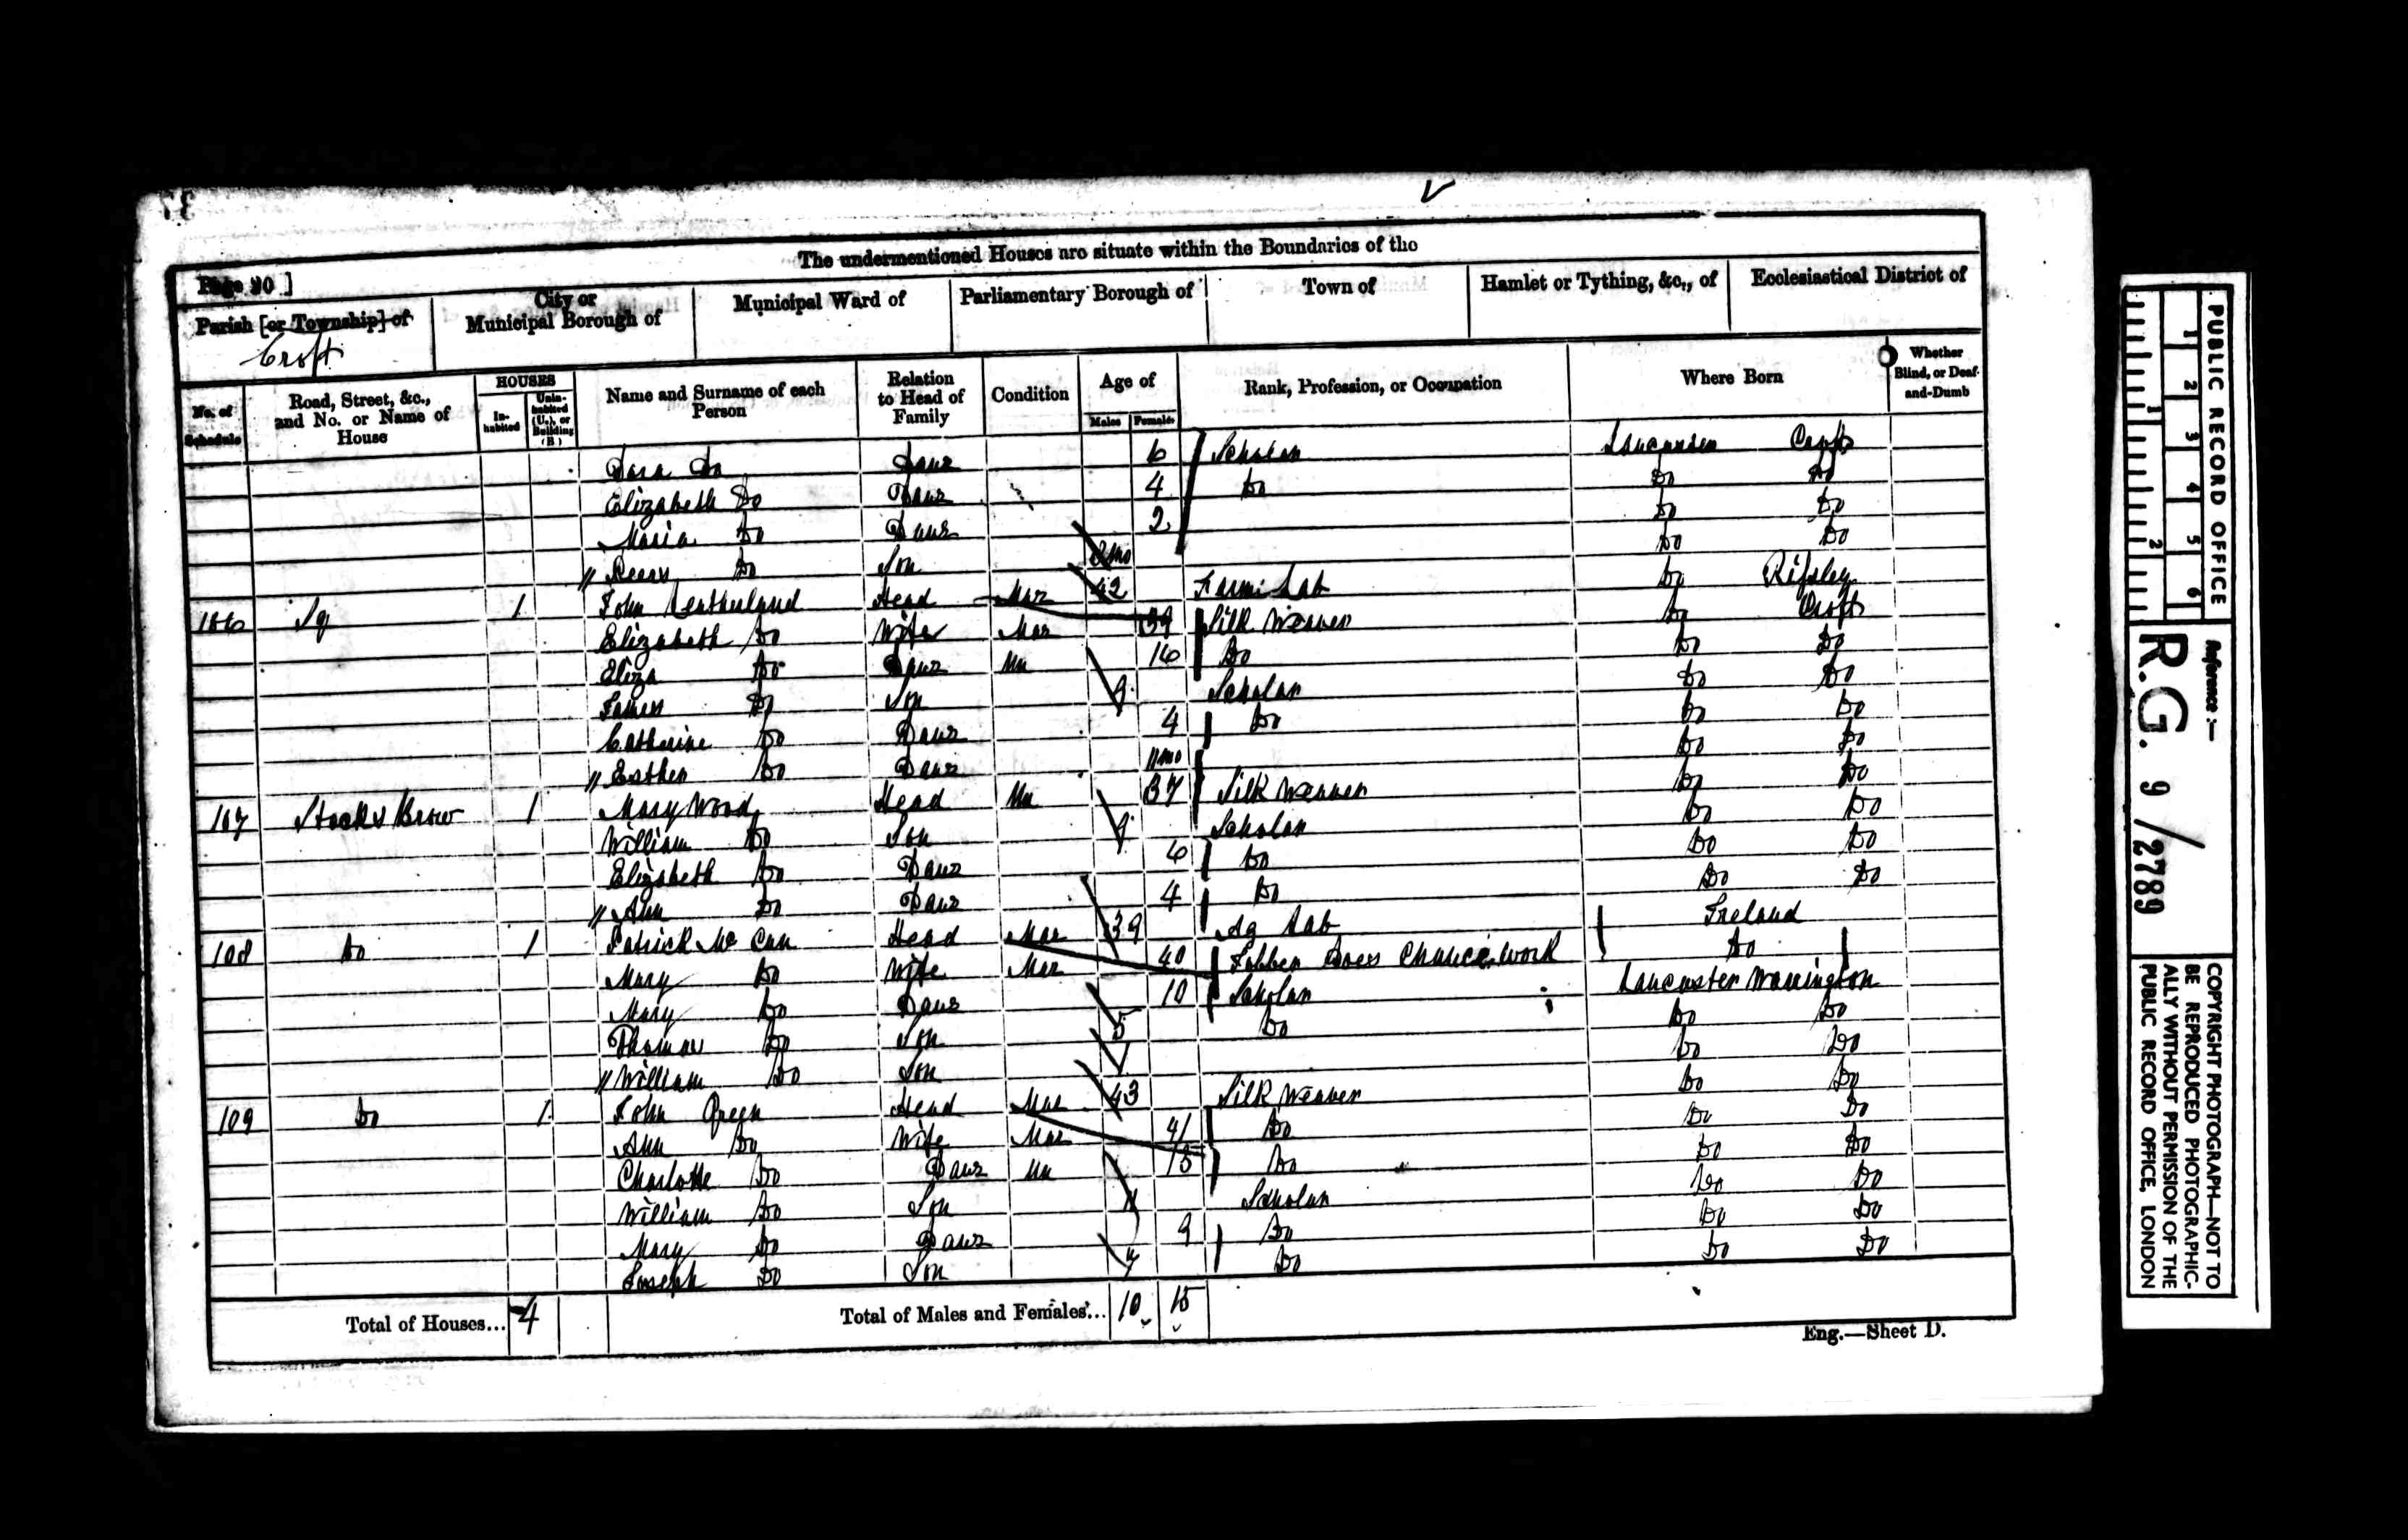 The undermentioned Houses are situate within the Boundaries of the
Page 20 ]
Parish [or Township] of
Croft
City or
Municipal Borough of
Municipal Ward of
Parliamentary Borough of
Town of
Hamlet or Tything, &c., of
Ecclesiastical District of
No. of Schedule
Road, Street, &c., and No. or Name of House
HOUSES
In-habited
Unin-habited (U.), or Building (B.)
Name and Surname of each Person
Relation to Head of Family
Condition
Age of
Males Females
Rank, Profession, or Occupation
Where Born
Whether Blind, or Deaf-and-Dumb
Sara Do Daur 6 Scholar Croft
Elizabeth Do Daur 4 Do Do Do
Maria Do Daur 2 Do Do
Do Son Do Do
106 1 John Head Mar 42 Farm Lab Do
Elizabeth Do Wife Mar 39 Silk Weaver Do Croft
Eliza Do Daur Un 16 Do Do Do
James Do Son 9 Scholar Do Do
Catherine Do Daur 4 Do Do Do
Esther Do Daur 11mo Do Do
107 Stocks Brow 1 Mary Wood Head Un 37 Silk Weaver Do Do
William Do Son 9 Scholar Do Do
Elizabeth Do Daur 6 Do Do Do
Ann Do Daur 4 Do Do Do
108 Do 1 Patrick Mc Can Head Mar 39 Ag Lab Ireland
Mary Do Wife Mar 40 Chance work Do
Mary Do Daur 10 Scholar Lancaster Warrington
Thomas Do Son 5 Do Do Do
William Do Son 1 Do Do
109 Do 1 John Green Head Mar 43 Silk Weaver Do Do
Ann Do Wife Mar 41 Do Do Do
Charlotte Do Daur Un 15 Do Do Do
William Do Son 11 Scholar Do Do
Mary Do Daur 9 Do Do Do
Joseph Do Son 7 Do Do Do
Total of Houses... 4
Total of Males and Females... 10 15
Eng.—Sheet D.
PUBLIC RECORD OFFICE
1 2 3 4 5 6
1 2
Reference :—
R.G. 9 / 2789
COPYRIGHT PHOTOGRAPH—NOT TO
BE REPRODUCED PHOTOGRAPHIC-
ALLY WITHOUT PERMISSION OF THE
PUBLIC RECORD OFFICE, LONDON